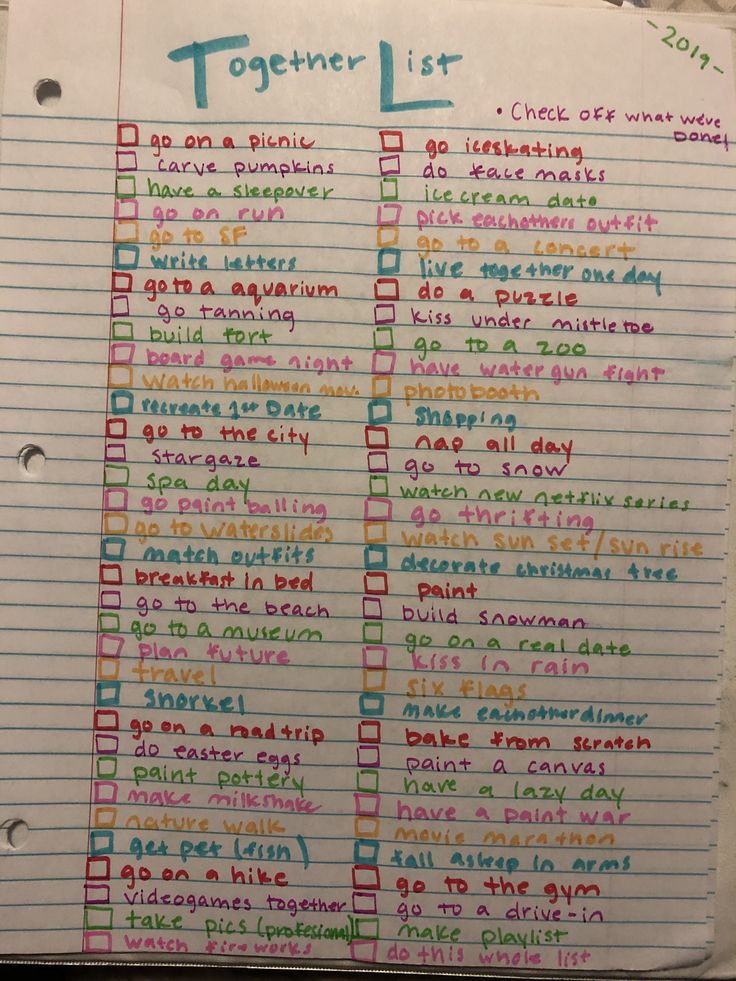 Together List
-2019-
• Check off what we've
Done!
go on a picnic
carve pumpkins
have a sleepover
go on run
go to SF
write letters
go to a aquarium
go tanning
build fort
board game night
watch halloween mov.
recreate 1st Date
go to the city
stargaze
spa day
go paint balling
go to waterslides
match outfits
breakfast in bed
go to the beach
go to a museum
plan future
travel
snorkel
go on a road trip
do easter eggs
paint pottery
make milkshake
nature walk
get pet (fish)
go on a hike
videogames together
take pics (professional)
watch fireworks
go iceskating
do face masks
ice cream date
pick eachothers outfit
go to a concert
live together one day
do a puzzle
kiss under mistletoe
go to a zoo
have water gun fight
photobooth
shopping
nap all day
go to snow
watch new netflix series
go thrifting
watch sun set/sun rise
decorate christmas tree
paint
build snowman
go on a real date
kiss in rain
six flags
make eachother dinner
bake from scratch
paint a canvas
have a lazy day
have a paint war
movie marathon
fall asleep in arms
go to the gym
go to a drive-in
make playlist
do this whole list